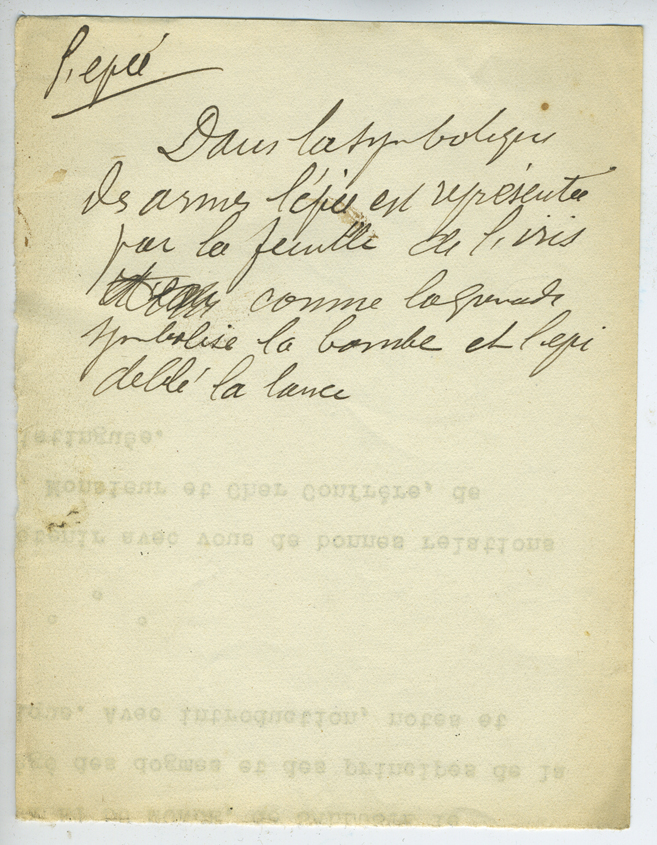 l'épée
Dans la symbolique
des armes l'épée est représentée
par la feuille de l'iris
comme la grenade
symbolise la bombe et l'épi
de blé la lance
istinguée.
Monsieur et Cher Confrère, de
etenir avec vous de bonnes relations
ique. Avec introduction, notes et
des dogmes et des principes de la
ET DU MONDE, de SALLUSTE le